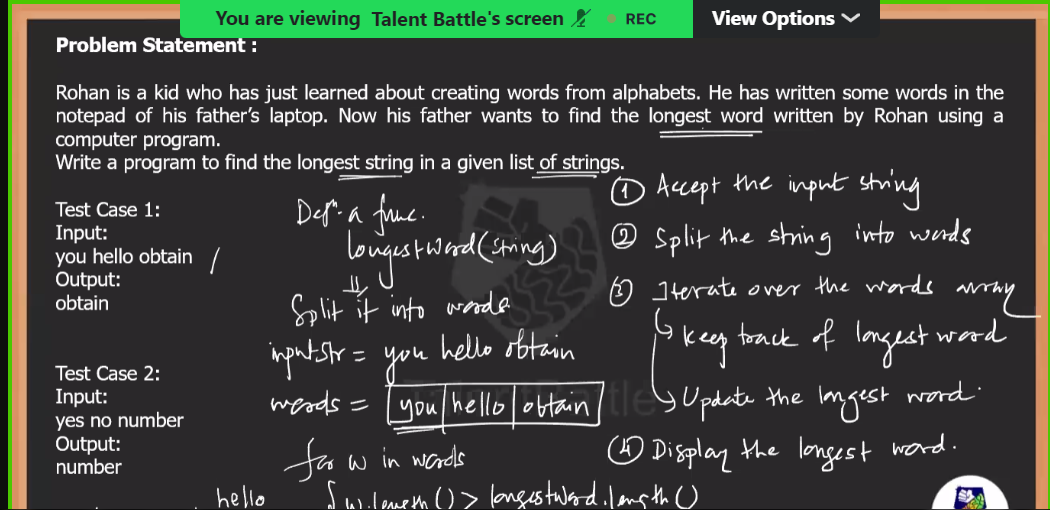 You are viewing Talent Battle's screen REC View Options
Problem Statement :
Rohan is a kid who has just learned about creating words from alphabets. He has written some words in the
notepad of his father's laptop. Now his father wants to find the longest word written by Rohan using a
computer program.
Write a program to find the longest string in a given list of strings.
Test Case 1:
Input:
you hello obtain
Output:
obtain
Test Case 2:
Input:
yes no number
Output:
number
Defⁿ. a func.
longestWord(string)
Split it into words
inputStr = you hello obtain
words = you hello obtain
for w in words
hello
w.length() > longestWord.length()
① Accept the input string
② Split the string into words
③ Iterate over the words array
keep track of longest word
Update the longest word.
④ Display the longest word.